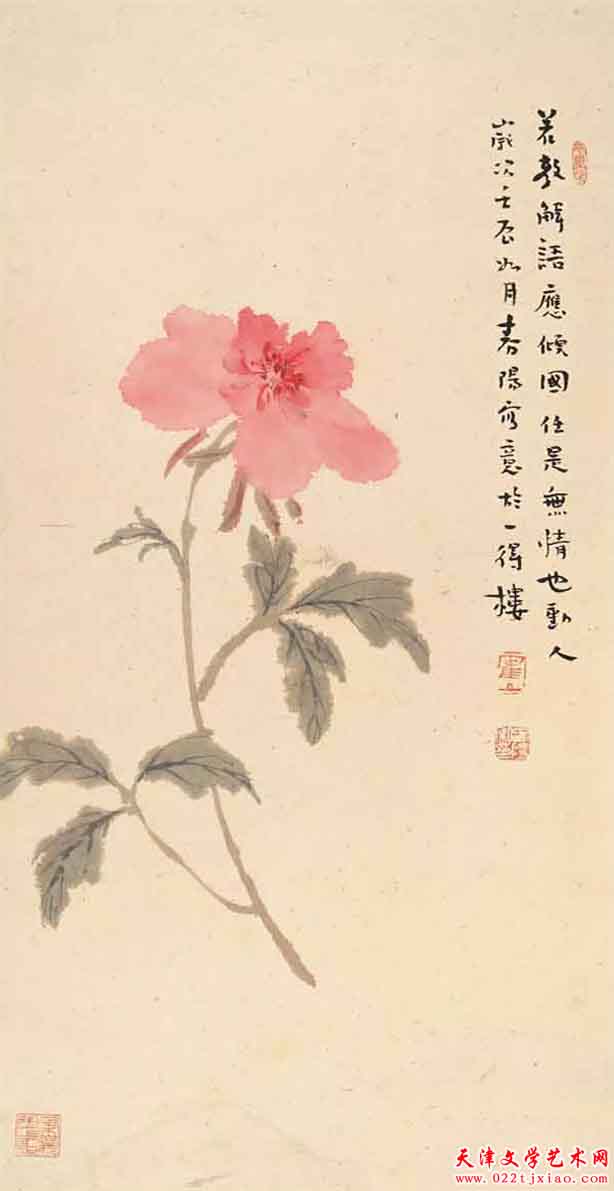 若教解語應傾國任是無情也動人
歲次壬辰如月春陽寫意於一得樓
天津文学艺术网
www.022tjxiao.com